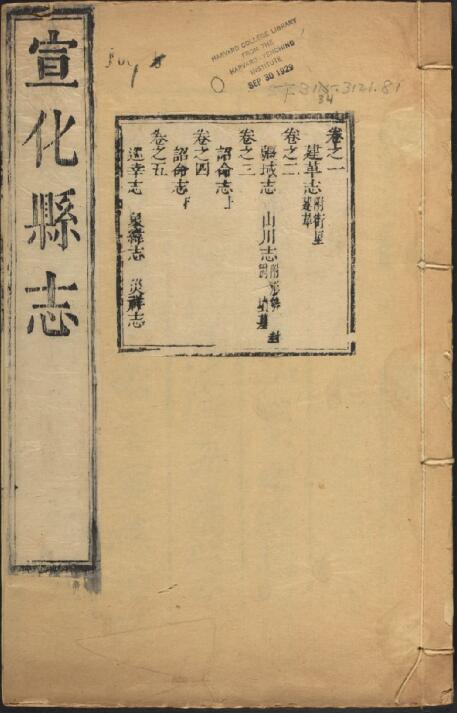 宣化縣志
HARVARD COLLEGE LIBRARY
FROM THE
HARVARD-YENCHING
INSTITUTE
SEP 30 1929
卷之一
建革志
卷之二
疆域志 山川志
卷之三
詔命志上
卷之四
詔命志下
卷之五
巡幸志 災祥志